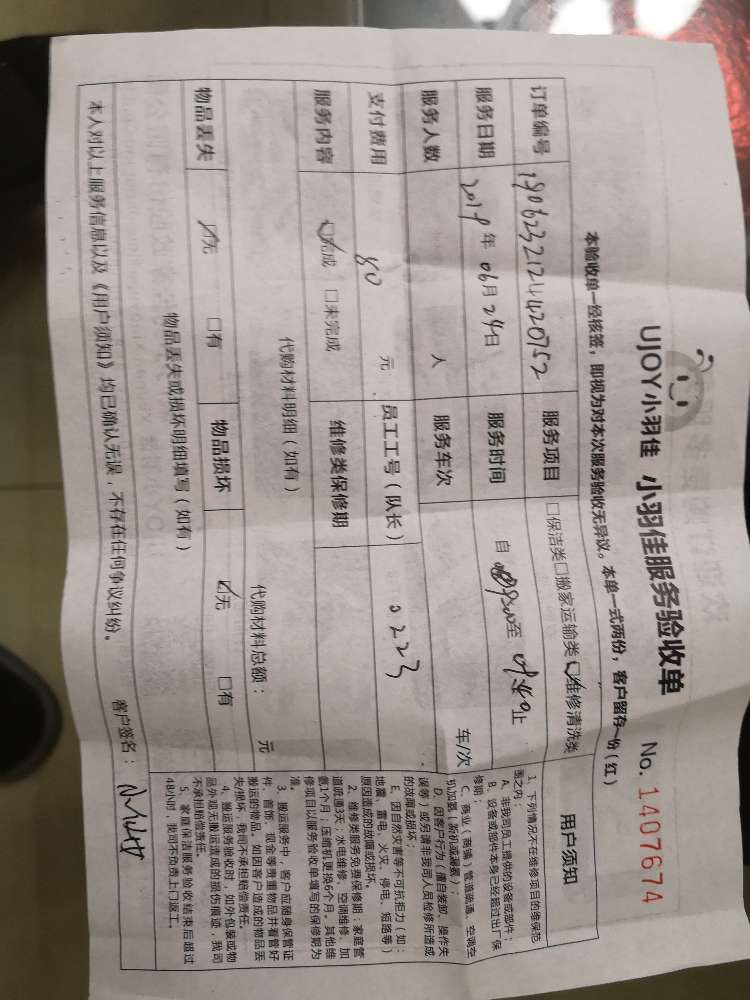 UJOY小羽佳 小羽佳服务验收单 No. 1407674
本验收单一经核签，即视为对本次服务验收无异议。本单一式两份，客户留存一份（红）
订单编号 1906232124420752 服务项目 □保洁类□搬家运输类☑维修清洗类
服务日期 2019年06月24日 服务时间 自 至 止
服务人数 人 服务车次 车/次
支付费用 80 元 员工工号（队长） 0223
服务内容 ☑完成 □未完成 维修类保修期
代购材料明细（如有） 代购材料总额： 元
物品丢失 ☑无 □有 物品损坏 ☑无 □有
物品丢失或损坏明细填写（如有）
本人对以上服务信息以及《用户须知》均已确认无误，不存在任何争议纠纷。 客户签名：
用户须知
1、下列情况不在维修项目的维保范
围之内：
A、非我司员工提供的设备或部件；
B、设备或部件本身已经超过出厂保
修期；
C、商业（商铺）管道疏通、空调空
机加氨（新机或漏氨）；
D、因客户行为（擅自装卸、操作失
误等）或另请非我司人员检修所造成
的故障或损坏；
E、因自然灾害等不可抗拒力（如：
地震、雷电、火灾、停电、短路等）
原因造成的故障或损坏。
2、维修类服务免费保修期：家庭管
道疏通3天；水电维修、空调维修、加
氨1个月；压缩机更换6个月。其他维
修项目以服务验收单填写的保修期为
准。
3、搬运服务中，客户应随身保管证
件、首饰、现金等贵重物品并看管好
搬运的物品。如因客户造成的物品丢
失/损坏，我司不承担赔偿责任。
4、搬运服务验收时，如外包装或物
品外观无搬运造成的损伤痕迹，我司
不承担赔偿责任。
5、家庭保洁服务验收结束后超过
48小时，我司不负责上门返工。